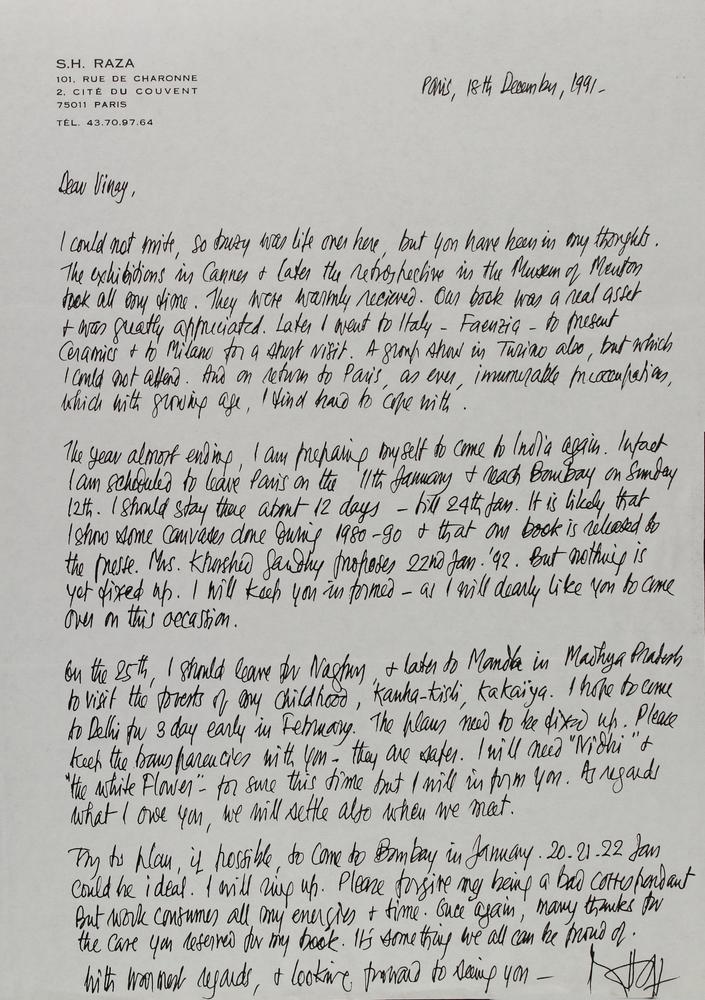 S.H. RAZA
101, RUE DE CHARONNE
2, CITÉ DU COUVENT
75011 PARIS
TÉL. 43.70.97.64
Paris, 18th December, 1991-
Dear Vinay,
I could not write, so buzy was life over here, but you have been in my thoughts.
The exhibitions in Cannes & Later the retrospective in the Museum of Menton
took all my time. They were warmly recieved. Our book was a real asset
& was greatly appriciated. Later I went to Italy - Faenzia - to present
Ceramics & to Milano for a short visit. A group show in Turino also, but which
I could not attend. And on return to Paris, as ever, innumerable preoccupations,
which with growing age, I find hard to cope with.
The year almost ending, I am preparing myself to come to India again. Infact
I am scheduled to leave Paris on the 11th January & reach Bombay on Sunday
12th. I should stay there about 12 days - till 24th Jan. It is likely that
I show some canvases done during 1980-90 & that our book is released to
the presse. Mrs. Khorshed Gandhy proposes 22nd Jan. '92. But nothing is
yet fixed up. I will keep you informed - as I will dearly like you to come
over on this occasion.
On the 25th, I should leave for Nagpur, & later to Mandla in Madhya Pradesh
to visit the forests of my childhood, Kanha-Kisli, Kakaiya. I hope to come
to Delhi for 3 day early in February. The plans need to be fixed up. Please
keep the transparencies with you - they are safer. I will need "Nidhi" &
"the white Flower" - for sure this time but I will inform you. As regards
what I owe you, we will settle also when we meet.
Try to plan, if possible, to come to Bombay in January. 20-21-22 Jan
could be ideal. I will ring up. Please forgive my being a bad correspondant
But work consumes all my energies & time. Once again, many thanks for
the care you reserved for my book. It's something we all can be proud of.
With warmest regards, & looking forward to seeing you -